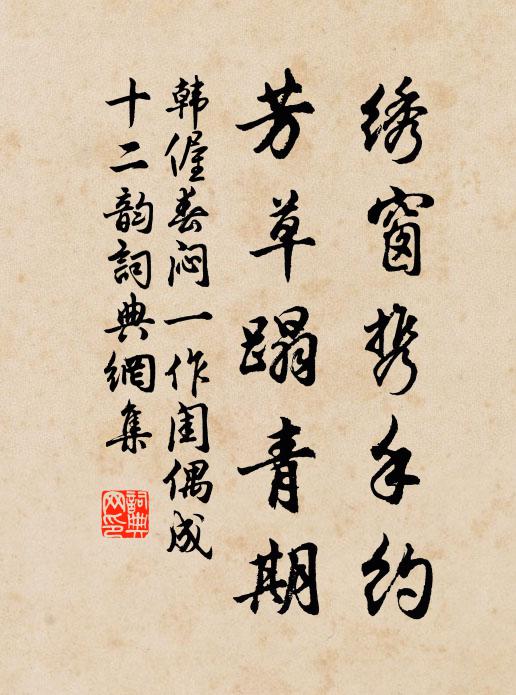 绣窗携手约
芳草蹋青期
韩偓春闷一作闺偶成
十二韵词典網集
詞典网印